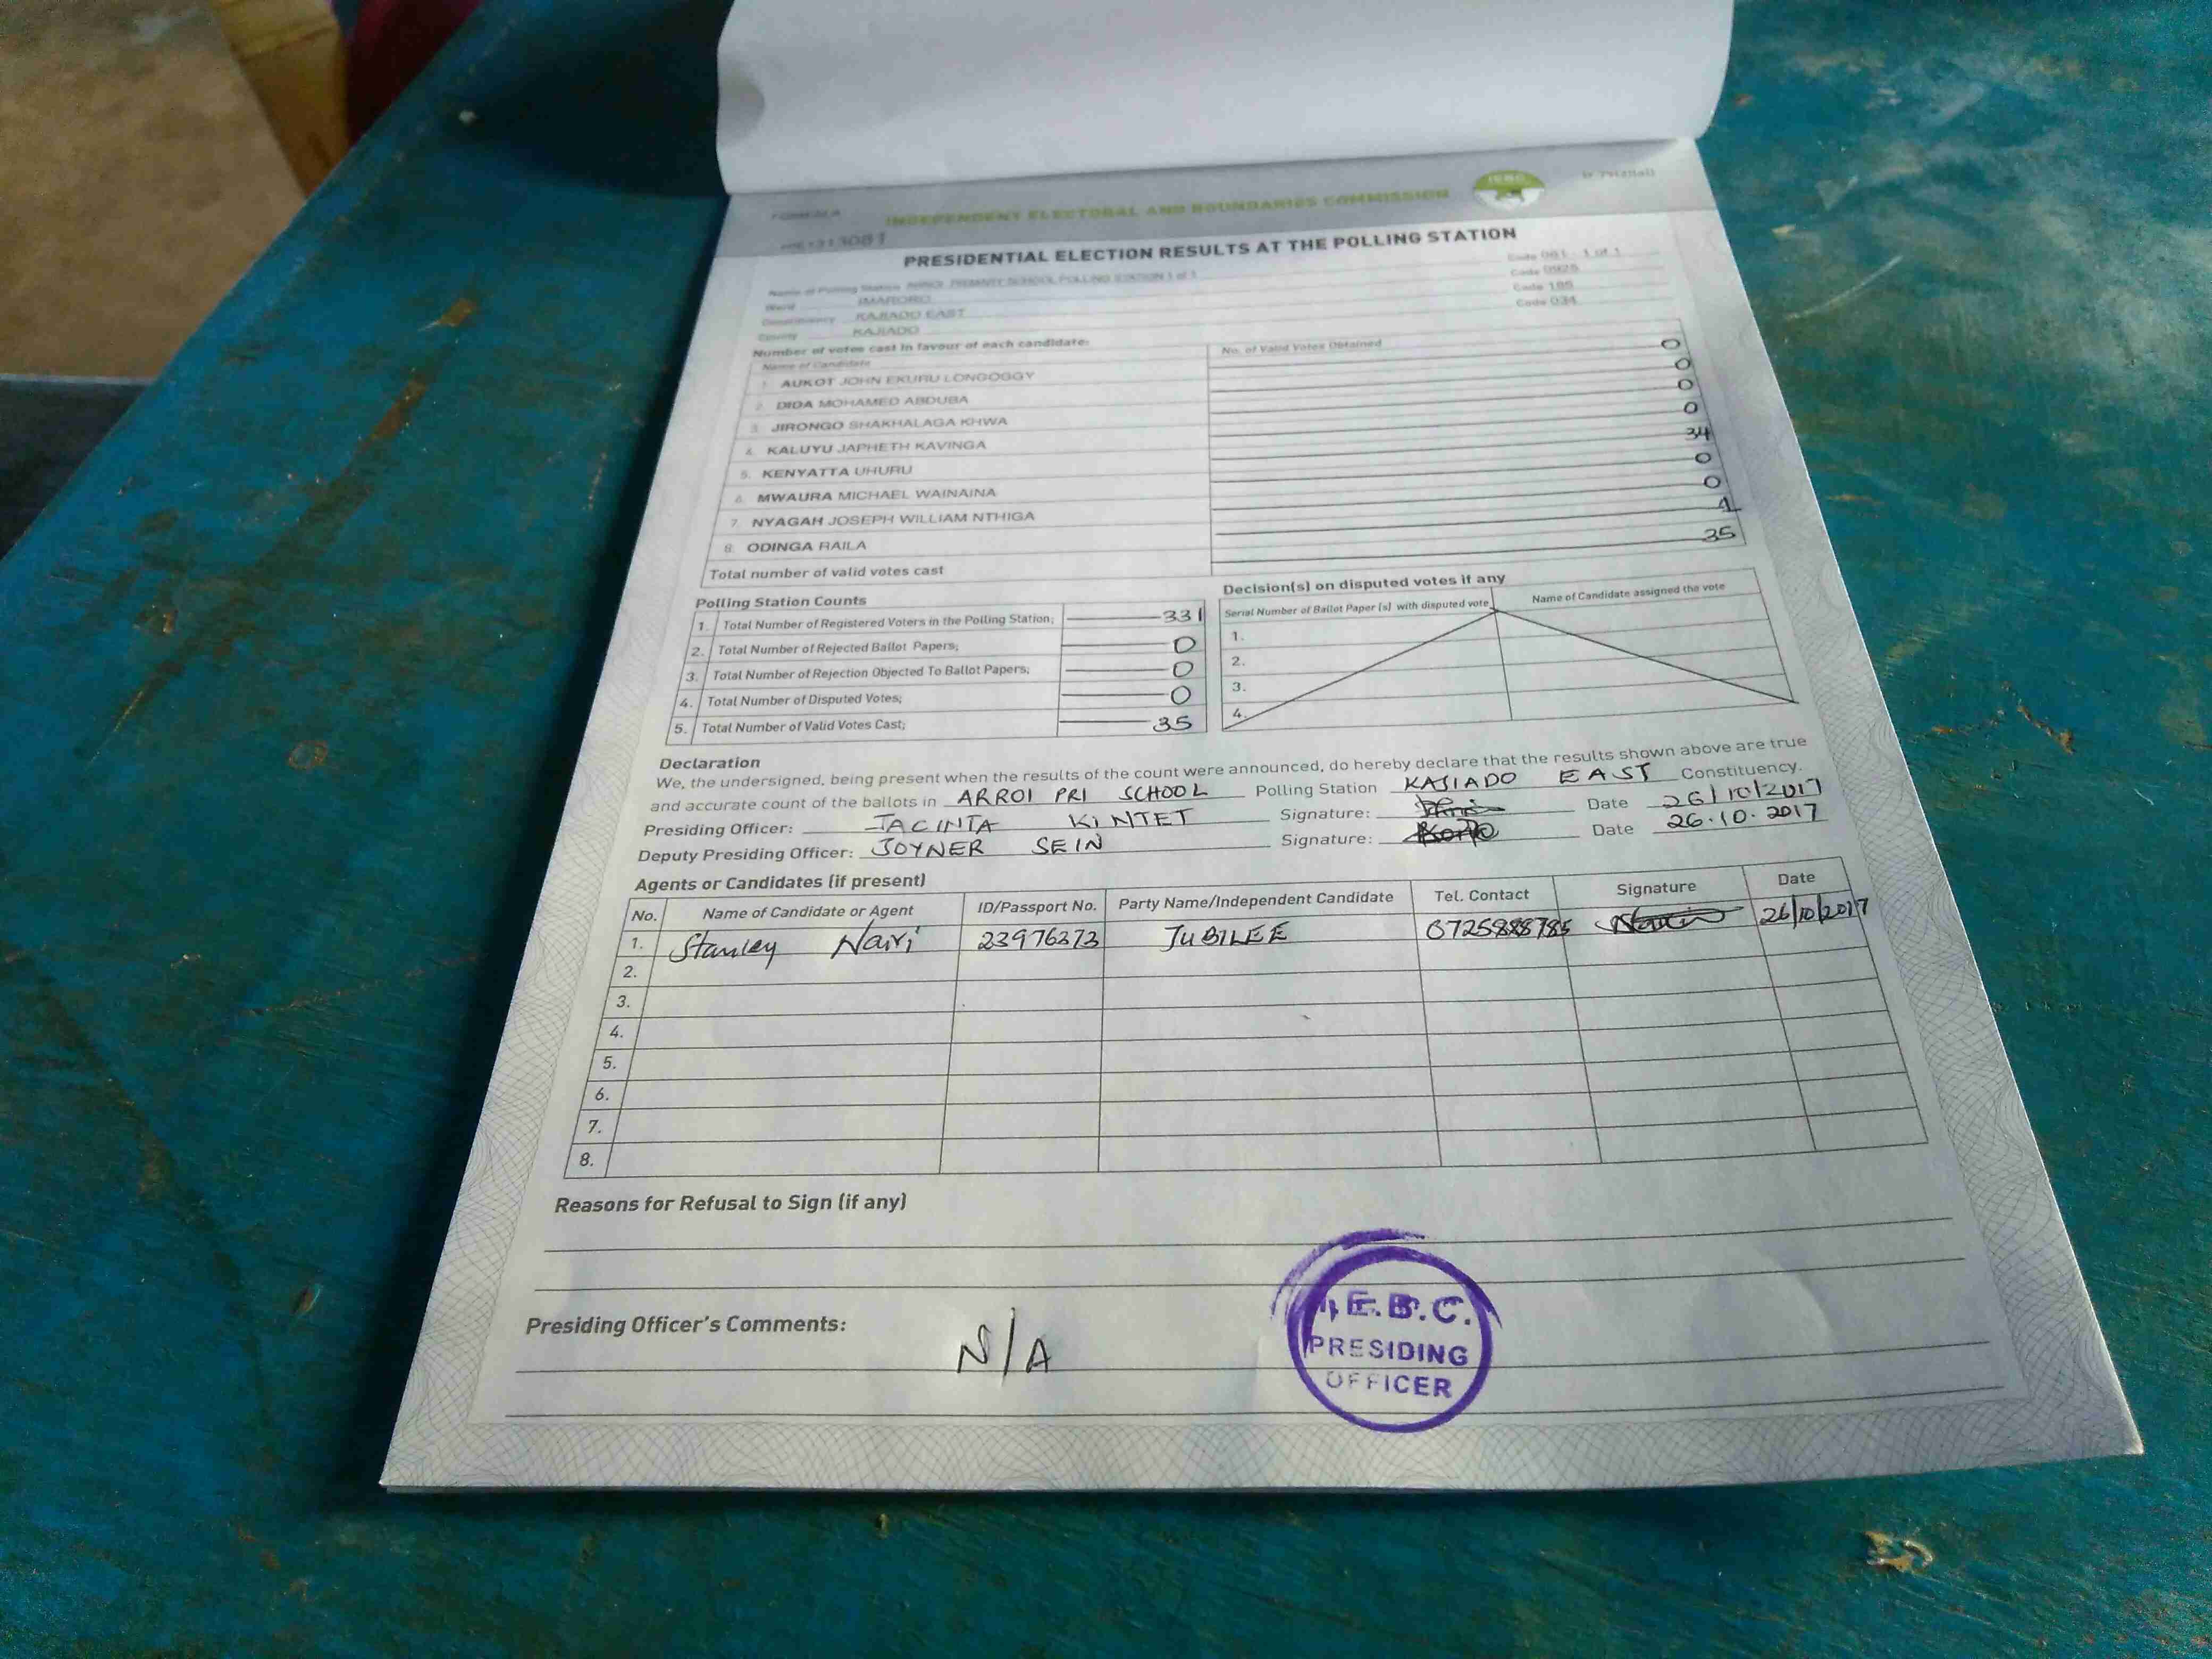 FORM 34A
INDEPENDENT ELECTORAL AND BOUNDARIES COMMISSION
IEBC
PRESIDENTIAL ELECTION RESULTS AT THE POLLING STATION
Name of Polling Station ARROI PRIMARY SCHOOL POLLING STATION 1 of 1 Code 081 - 1 of 1
Ward IMARORO Code 0925
Constituency KAJIADO EAST Code 185
County KAJIADO Code 034
Number of votes cast in favour of each candidate:
Name of Candidate No. of Valid Votes Obtained
1. AUKOT JOHN EKURU LONGOGGY 0
2. DIDA MOHAMED ABDUBA 0
3. JIRONGO SHAKHALAGA KHWA 0
4. KALUYU JAPHETH KAVINGA 0
5. KENYATTA UHURU 34
6. MWAURA MICHAEL WAINAINA 0
7. NYAGAH JOSEPH WILLIAM NTHIGA 0
8. ODINGA RAILA 1
Total number of valid votes cast 35
Polling Station Counts
1. Total Number of Registered Voters in the Polling Station; 331
2. Total Number of Rejected Ballot Papers; 0
3. Total Number of Rejection Objected To Ballot Papers; 0
4. Total Number of Disputed Votes; 0
5. Total Number of Valid Votes Cast; 35
Decision(s) on disputed votes if any
Serial Number of Ballot Paper (s) with disputed vote Name of Candidate assigned the vote
1.
2.
3.
4.
Declaration
We, the undersigned, being present when the results of the count were announced, do hereby declare that the results shown above are true
and accurate count of the ballots in ARROI PRI SCHOOL Polling Station KAJIADO EAST Constituency.
Presiding Officer: JACINTA KINTET Signature: Date 26/10/2017
Deputy Presiding Officer: JOYNER SEIN Signature: Date 26.10.2017
Agents or Candidates (if present)
No. Name of Candidate or Agent ID/Passport No. Party Name/Independent Candidate Tel. Contact Signature Date
1. Stanley Nairi 23976373 JUBILEE 0725888785 26/10/2017
2.
3.
4.
5.
6.
7.
8.
Reasons for Refusal to Sign (if any)
Presiding Officer's Comments:
N/A
I.E.B.C.
PRESIDING
OFFICER